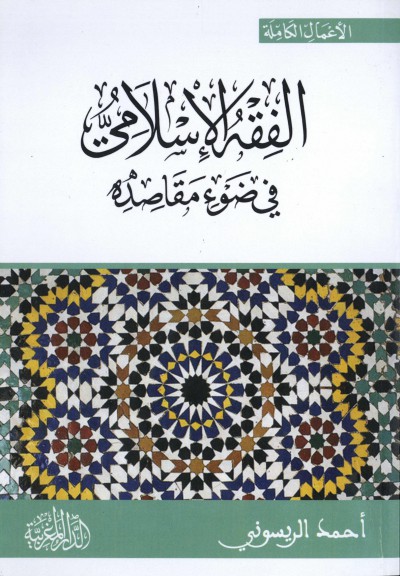 الأعمال الكاملة
الفِقْهُ الإِسْلَامِيُّ
فِي ضَوْءِ مَقَاصِدِهِ
أحمد الريسوني
الدار المغربية